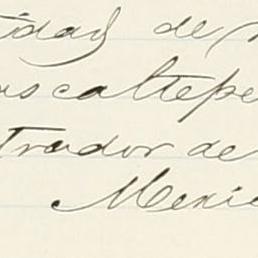 idad de
ascaltepe
trador de
Mexi